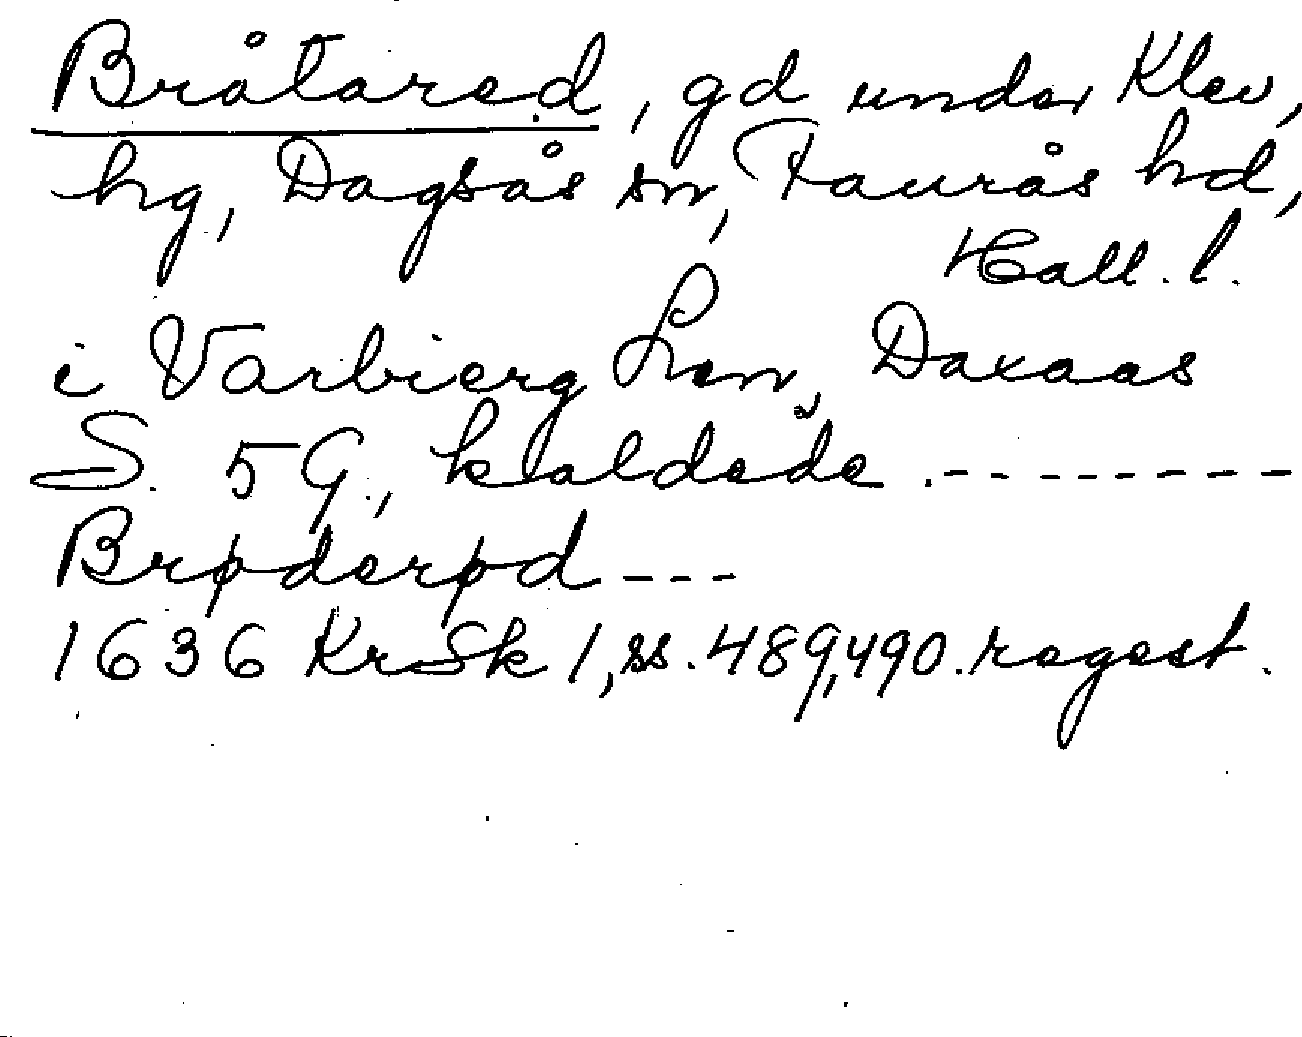 Bråtared, gd under Klev,
hg, Dagsås sn, Faurås hd,
Hall. l.
i Varbierg Len, Daxaas
S. 5 G., kaldede . - - - - - - - -
Brøderød - - -
1636 KrSk 1, ss. 489, 490. regest.